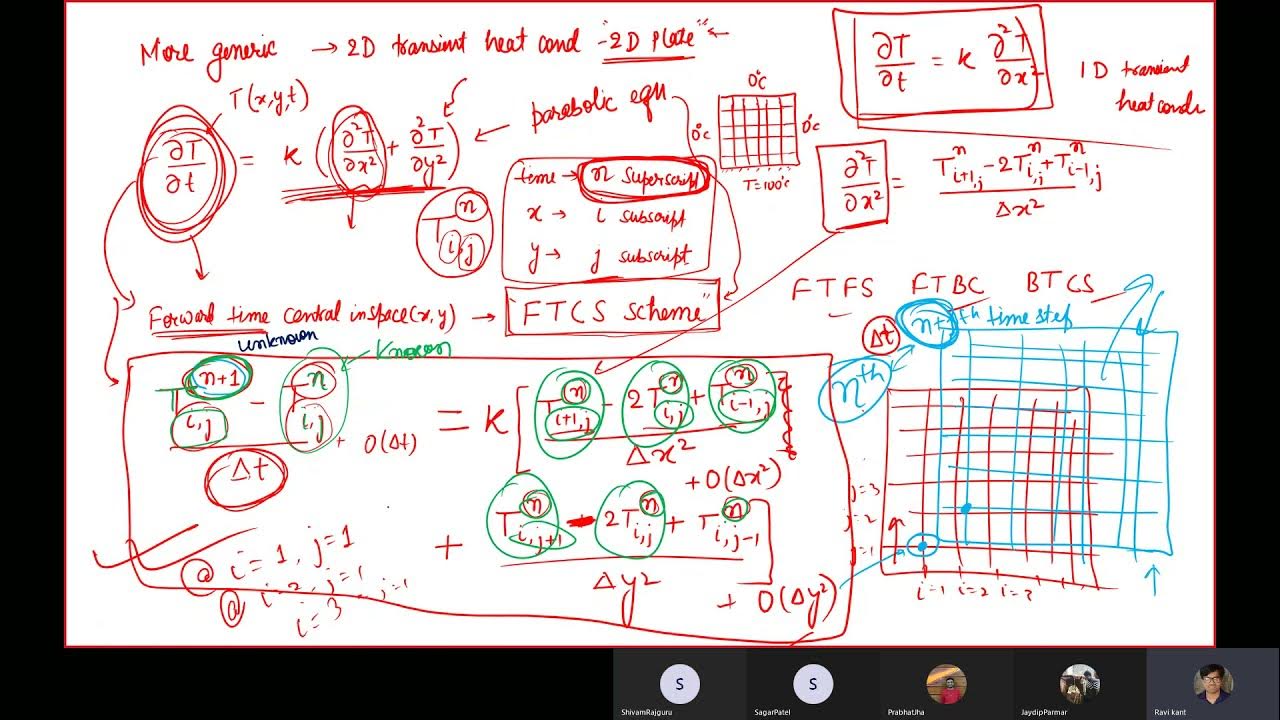 More generic → 2D transient heat cond - "2D Plate" ←
∂T/∂t = k ∂²T/∂x²
1D transient
heat condn
T(x,y,t)
∂T/∂t = k (∂²T/∂x² + ∂²T/∂y²) ← parabolic equ
0°c
0°c
0°c
T=100°c
time → n superscript
x → i subscript
y → j subscript
T^n_i,j
∂²T/∂x² = (T^n_i+1,j - 2T^n_i,j + T^n_i-1,j)/Δx²
Forward time central in space(x,y) → "FTCS scheme"
FTFS FTBC BTCS
unknown
known
(T^n+1_i,j - T^n_i,j)/Δt + O(Δt) = k [(T^n_i+1,j - 2T^n_i,j + T^n_i-1,j)/Δx² + O(Δx²)
+ (T^n_i,j+1 - 2T^n_i,j + T^n_i,j-1)/Δy²] + O(Δy²)
@ i=1, j=1
@ i=2, j=1
i=3 j=1
n+1th time step
Δt
nth
j=3
j=2
j=1
i=1 i=2 i=3
S
S
ShivamRajguru
SagarPatel
PrabhatJha
JaydipParmar
Ravi kant